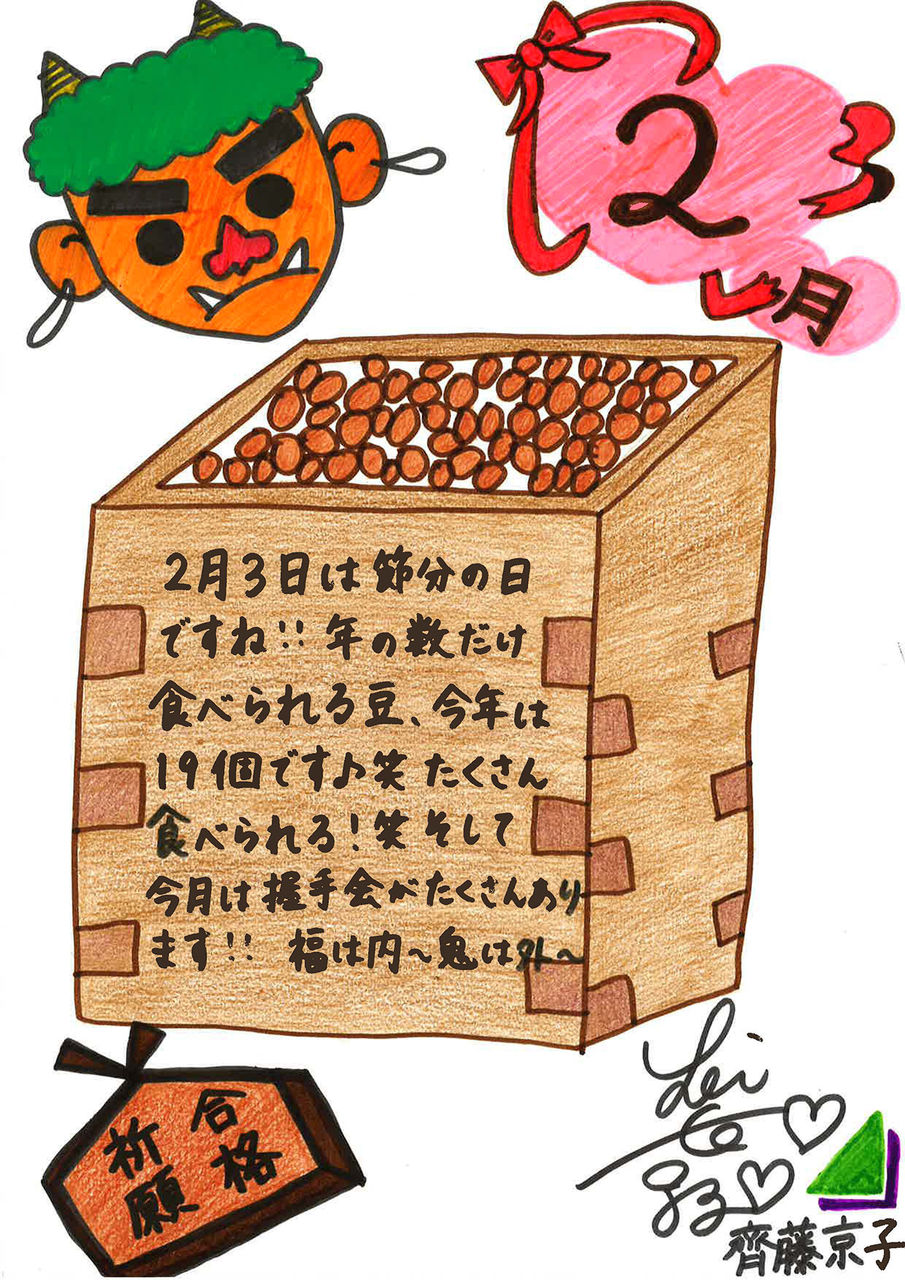 2月
2月3日は節分の日
ですね!!年の数だけ
食べられる豆、今年は
19個です♪笑 たくさん
食べられる!笑 そして
今月は握手会がたくさんあり
ます!! 福は内〜鬼は外〜
合格
祈願
齊藤京子